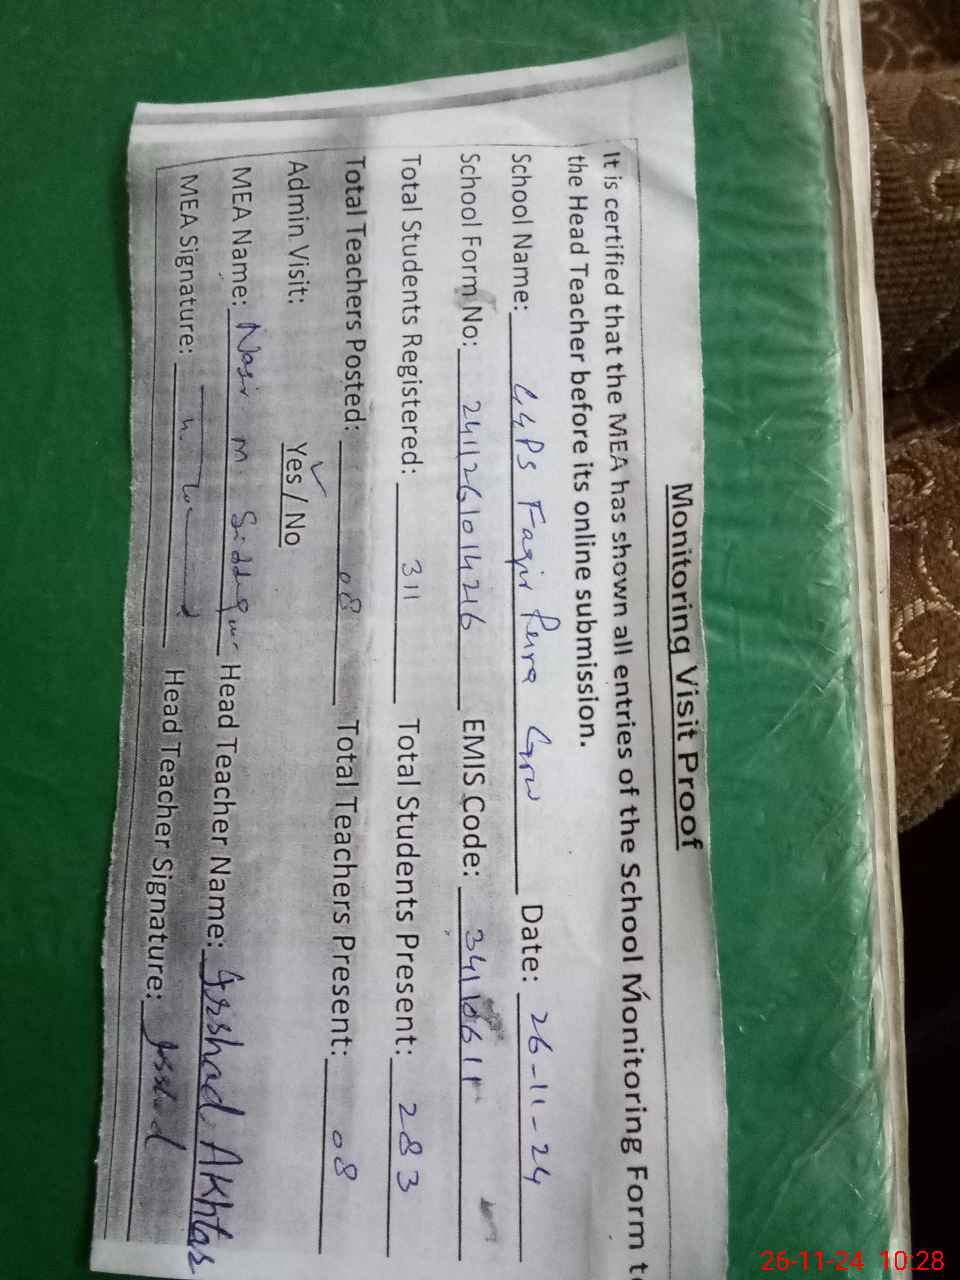 Monitoring Visit Proof
It is certified that the MEA has shown all entries of the School Monitoring Form t
the Head Teacher before its online submission.
School Name: GGPS Faqir Pura Grw Date: 26-11-24
School Form No: 2411261014216 EMIS Code: 34110611
Total Students Registered: 311 Total Students Present: 283
Total Teachers Posted: 08 Total Teachers Present: 08
Admin Visit: Yes / No
MEA Name: Nasir M Siddique Head Teacher Name: Arshad Akhtar
MEA Signature: Head Teacher Signature:
26-11-24 10:28